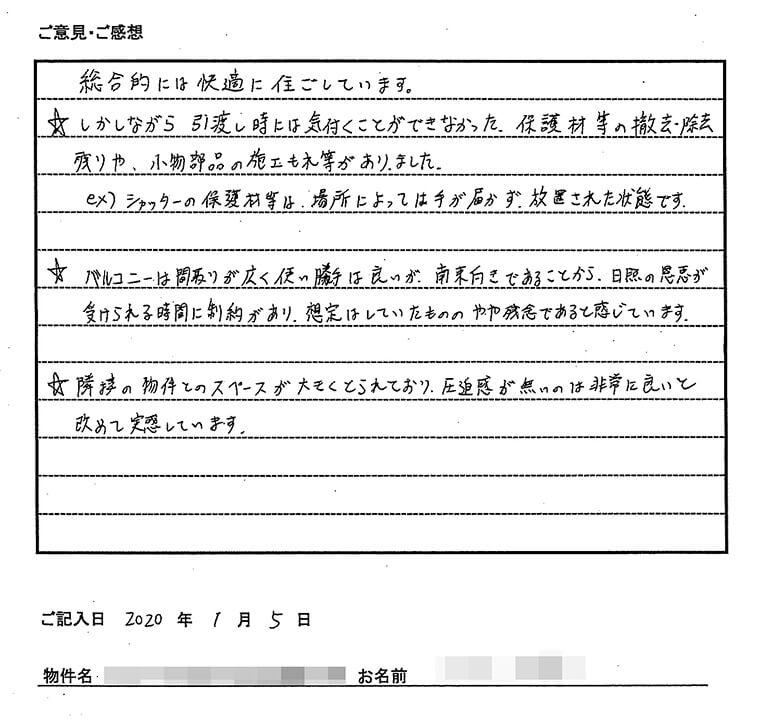 ご意見・ご感想
総合的には快適に住ごしています。
☆しかしながら 引渡し時には気付くことができなかった、保護材等の撤去・除去
残りや、小物部品の施工もれ等がありました。
ex) シャッターの保護材等は、場所によっては手が届かず、放置された状態です。
☆ バルコニーは間取りが広く使い勝手は良いが、南東向きであることから、日照の恩恵が
受けられる時間に制約があり、想定はしていたもののやや残念であると感じています。
☆ 隣接の物件とのスペースが大きくとられており、圧迫感が無いのは非常に良いと
改めて実感しています。
ご記入日 2020 年 1 月 5 日
物件名 お名前